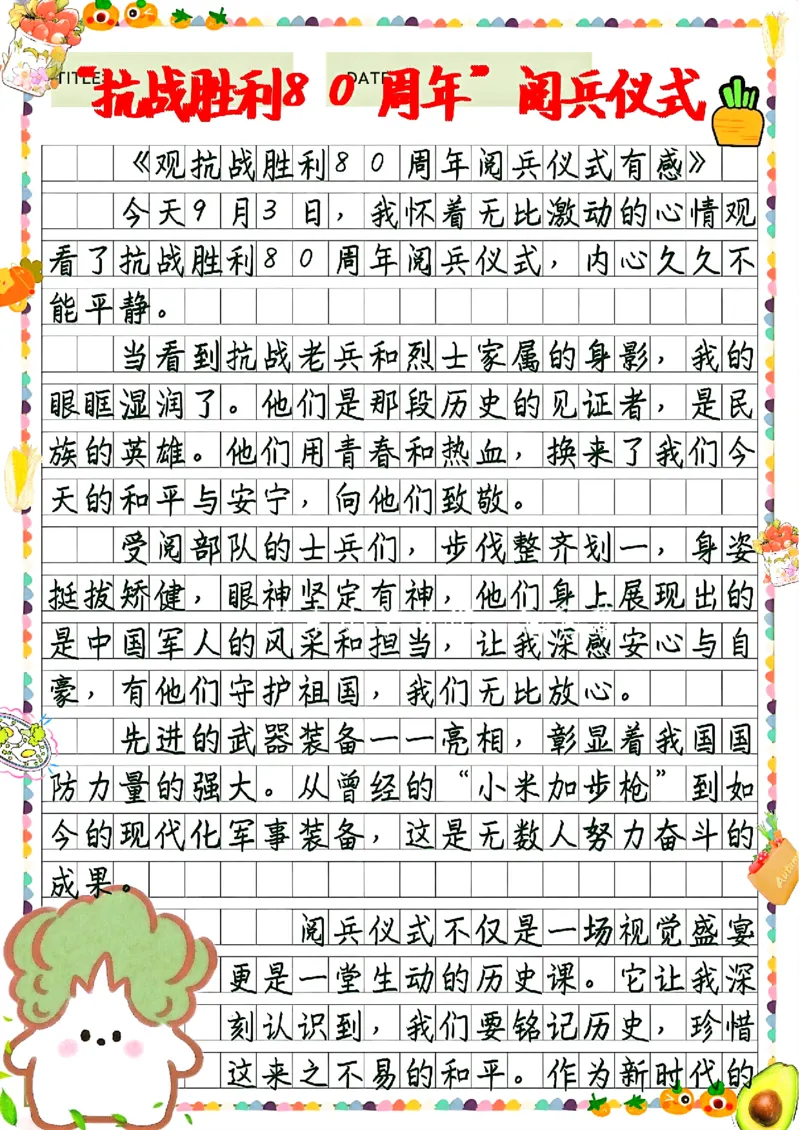 TITLE: DATE
“抗战胜利80周年”阅兵仪式
《观抗战胜利80周年阅兵仪式有感》
今天9月3日，我怀着无比激动的心情观
看了抗战胜利80周年阅兵仪式，内心久久不
能平静。
当看到抗战老兵和烈士家属的身影，我的
眼眶湿润了。他们是那段历史的见证者，是民
族的英雄。他们用青春和热血，换来了我们今
天的和平与安宁，向他们致敬。
受阅部队的士兵们，步伐整齐划一，身姿
挺拔矫健，眼神坚定有神，他们身上展现出的
是中国军人的风采和担当，让我深感安心与自
豪，有他们守护祖国，我们无比放心。
先进的武器装备一一亮相，彰显着我国国
防力量的强大。从曾经的“小米加步枪”到如
今的现代化军事装备，这是无数人努力奋斗的
成果。
阅兵仪式不仅是一场视觉盛宴
更是一堂生动的历史课。它让我深
刻认识到，我们要铭记历史，珍惜
这来之不易的和平。作为新时代的